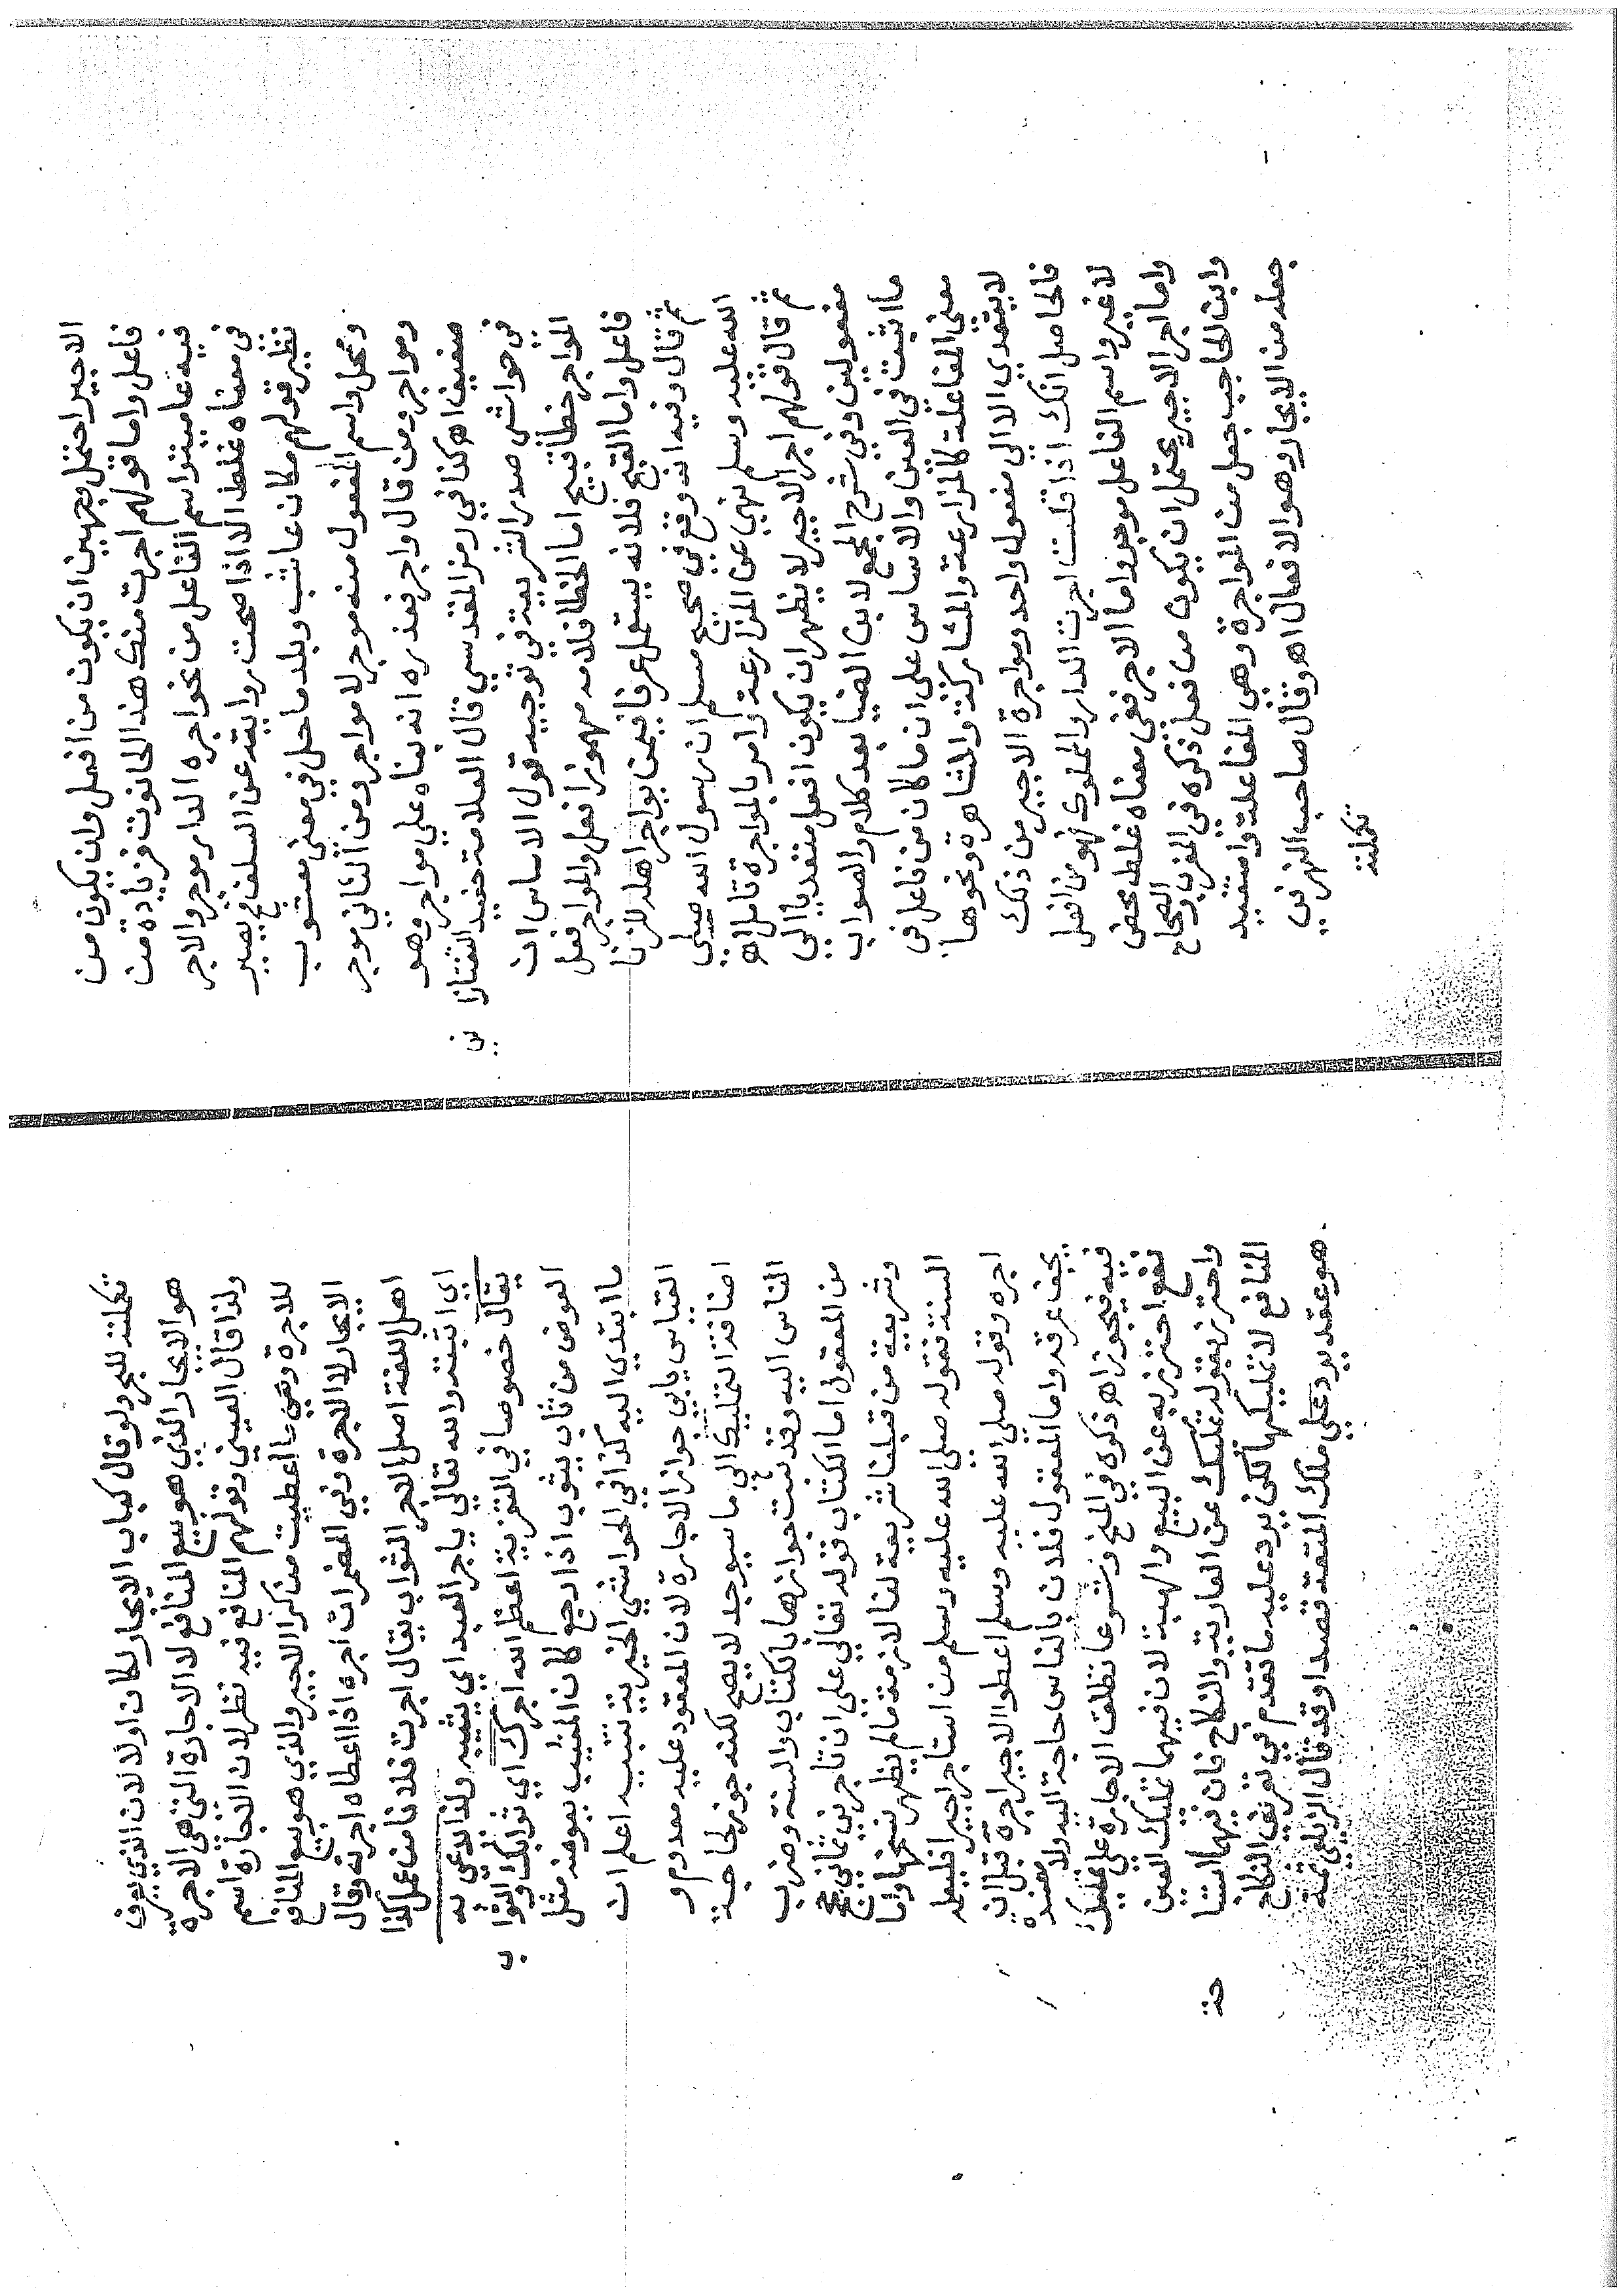 الاجير احتمل وجهين ان يكون من افعل وان يكون من
فاعل واما قولهم اجرت منك هذا الحانوت فزيادة من
فيه عامية واسم الفاعل من نحو اجره الدار موجر والاجر
في معناه غلط الا اذا صحت روايته عن السلف فيصير
نظير قولهم مكان عاشب وبلد ماحل في معنى معشوب
ومحل واسم المفعول منه موجر لا مواجر ومن الثاني موجر
ومواجر ومن قال واجر فعذره انه بناه على مواجر وهو
ضعيف اهـ كذا في رمز المقدسي قال العلامة حفيد التفتازا
ني
في حواشي صدر الشريعة في توجيه قول الاساس ان
المواجر خطأ قبيح اما الخطا فلانه مهموز افعل والمواجر فعل
فاعل واما القبح فلانه يستعمل عرفا فيمن يواجر اهله للزنا
ثم قال وفيه انه وقع في صحيح مسلم ان رسول الله صلى
الله عليه وسلم نهى عن المزارعة وامر بالمواجرة تامل اهـ
ثم قال قولهم اجر الاجير لا يظهر ان يكون افعل متعديا الى
مفعولين وفي شرح المجمع لابن الضيا بعد كلام والصواب
ما اثبت في العين والاساس على ان ما كان من فاعل في
معنى المفاعلة كالمزارعة والمشاركة والمشاهرة ونحوها
لا يتعدى الا الى مفعول واحد ومواجرة الاجير من ذلك
فالحاصل انك اذا قلت اجرت الدار والمملوك فهو من افعل
لا غير واسم الفاعل موجر واما الاجر ففي معناه غلط محض
واما اجر الاجير يحتمل ان يكون من فعل ذكره في المغرب والصحاح
وابن الحاجب جعل من المواجرة وهي المفاعلة واستفيد
جعله من الايجار وهو الافعال اهـ وقال صاحب النهر في
تكملته
تكملته للبحر ولو قال كتاب الايجار لكان اولى لان الذي يعرف
هو الايجار الذي هو بيع المنافع لا الاجارة التي هي الاجرة
ولذا قال العيني قولهم المنافع فيه نظر لان الاجارة اسم
للاجرة وهي ما اعطيت من كرا الاجير والذي هو بيع المنافع
الايجار لا الاجرة وفي المضمرات اجره اذا اعطاه اجرته وقال
اهل اللغة اصل الاجر الثواب يقال اجرت فلانا من عمل كذا
اي اثبته والله تعالى ياجر العبد اي يثيبه ولذا دعي به
يقال خصوصا في التعزية اعظم الله اجرك اي ثوابك والثوا
ب
العوض من ثاب يثوب اذا رجع كان المثيب يعوضه مثل
ما ابتدي اليه كذا في الحواشي الخيرية تنبيه اعلم ان
القياس يابى جواز الاجارة لان المعقود عليه معدوم و
اضافة التمليك الى ما سيوجد لا يصح لكنه جوز لحاجة
الناس اليه وقد ثبت جوازها بالكتاب والسنة وضرب
من المعقول اما الكتاب قوله تعالى على ان تاجرني ثماني حجج
وشريعة من قبلنا شريعة لنا لازمة ما لم يظهر نسخها واما
السنة فقوله صلى الله عليه وسلم من استاجر اجيرا فليعلمه
اجره وقوله صلى الله عليه وسلم اعطوا الاجير اجرة قبل ان
يجف عرقه واما المعقول فلان بالناس حاجة اليه ولا مفسدة
فيه فيجوز اهـ ذكره في المنح وشرعا تطلق الاجارة على تمليك
نفع احترز به عن البيع والهبة لان فيهما تمليك العين
واحترز بقوله تمليك عن العارية والنكاح فان فيهما استبا
حة
المنافع لا تمليكها لكن يرد عليه ما تقدم في تعريف النكاح
هو عقد يرد على ملك المتعة قصدا وقد قال الزيلعي ثمة